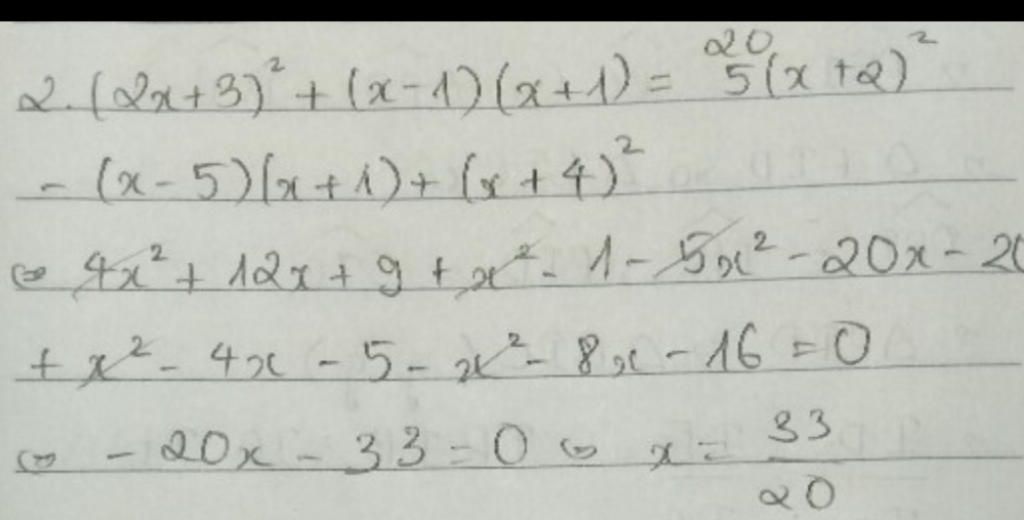 20
2. (2x+3)² + (x-1)(x+1) = 5(x+2)²
- (x-5)(x+1) + (x+4)²
⇔ 4x² + 12x + 9 + x² - 1 - 5x² - 20x - 20
+ x² - 4x - 5 - x² - 8x - 16 = 0
⇔ - 20x - 33 = 0 ⇔ x = 33/20